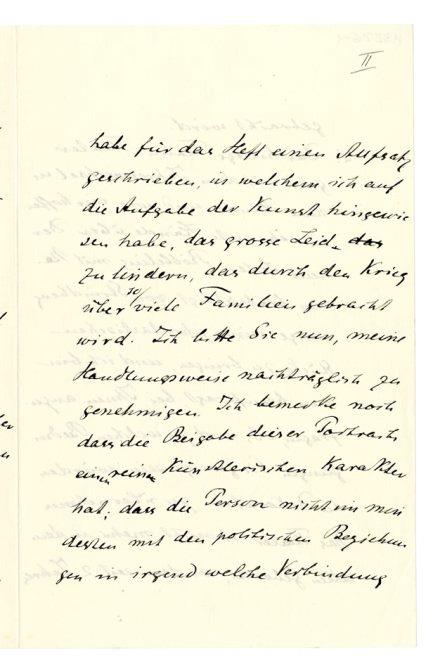 II
habe für das Heft einen Aufsatz
geschrieben, in welchem ich auf
die Aufgabe der Kunst hingewie
sen habe, das grosse Leid, das
zu lindern, das durch den Krieg
über so viele Familien gebracht
wird. Ich bitte Sie nun, meine
Handlungsweise nachträglich zu
genehmigen. Ich bemerke noch
dass die Beigabe dieser Portraits
einen reinen Künstlerischen Karakter
hat; dass die Person nicht im min
desten mit den politischen Beziehun
gen in irgend welche Verbindung